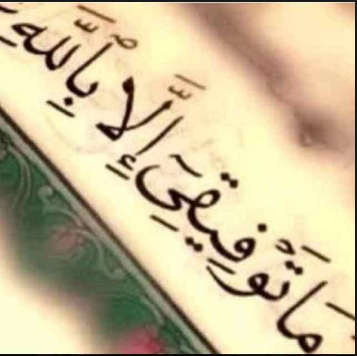 مَا تَوْفِيقِيٓ إِلَّا بِٱللَّهِۚ